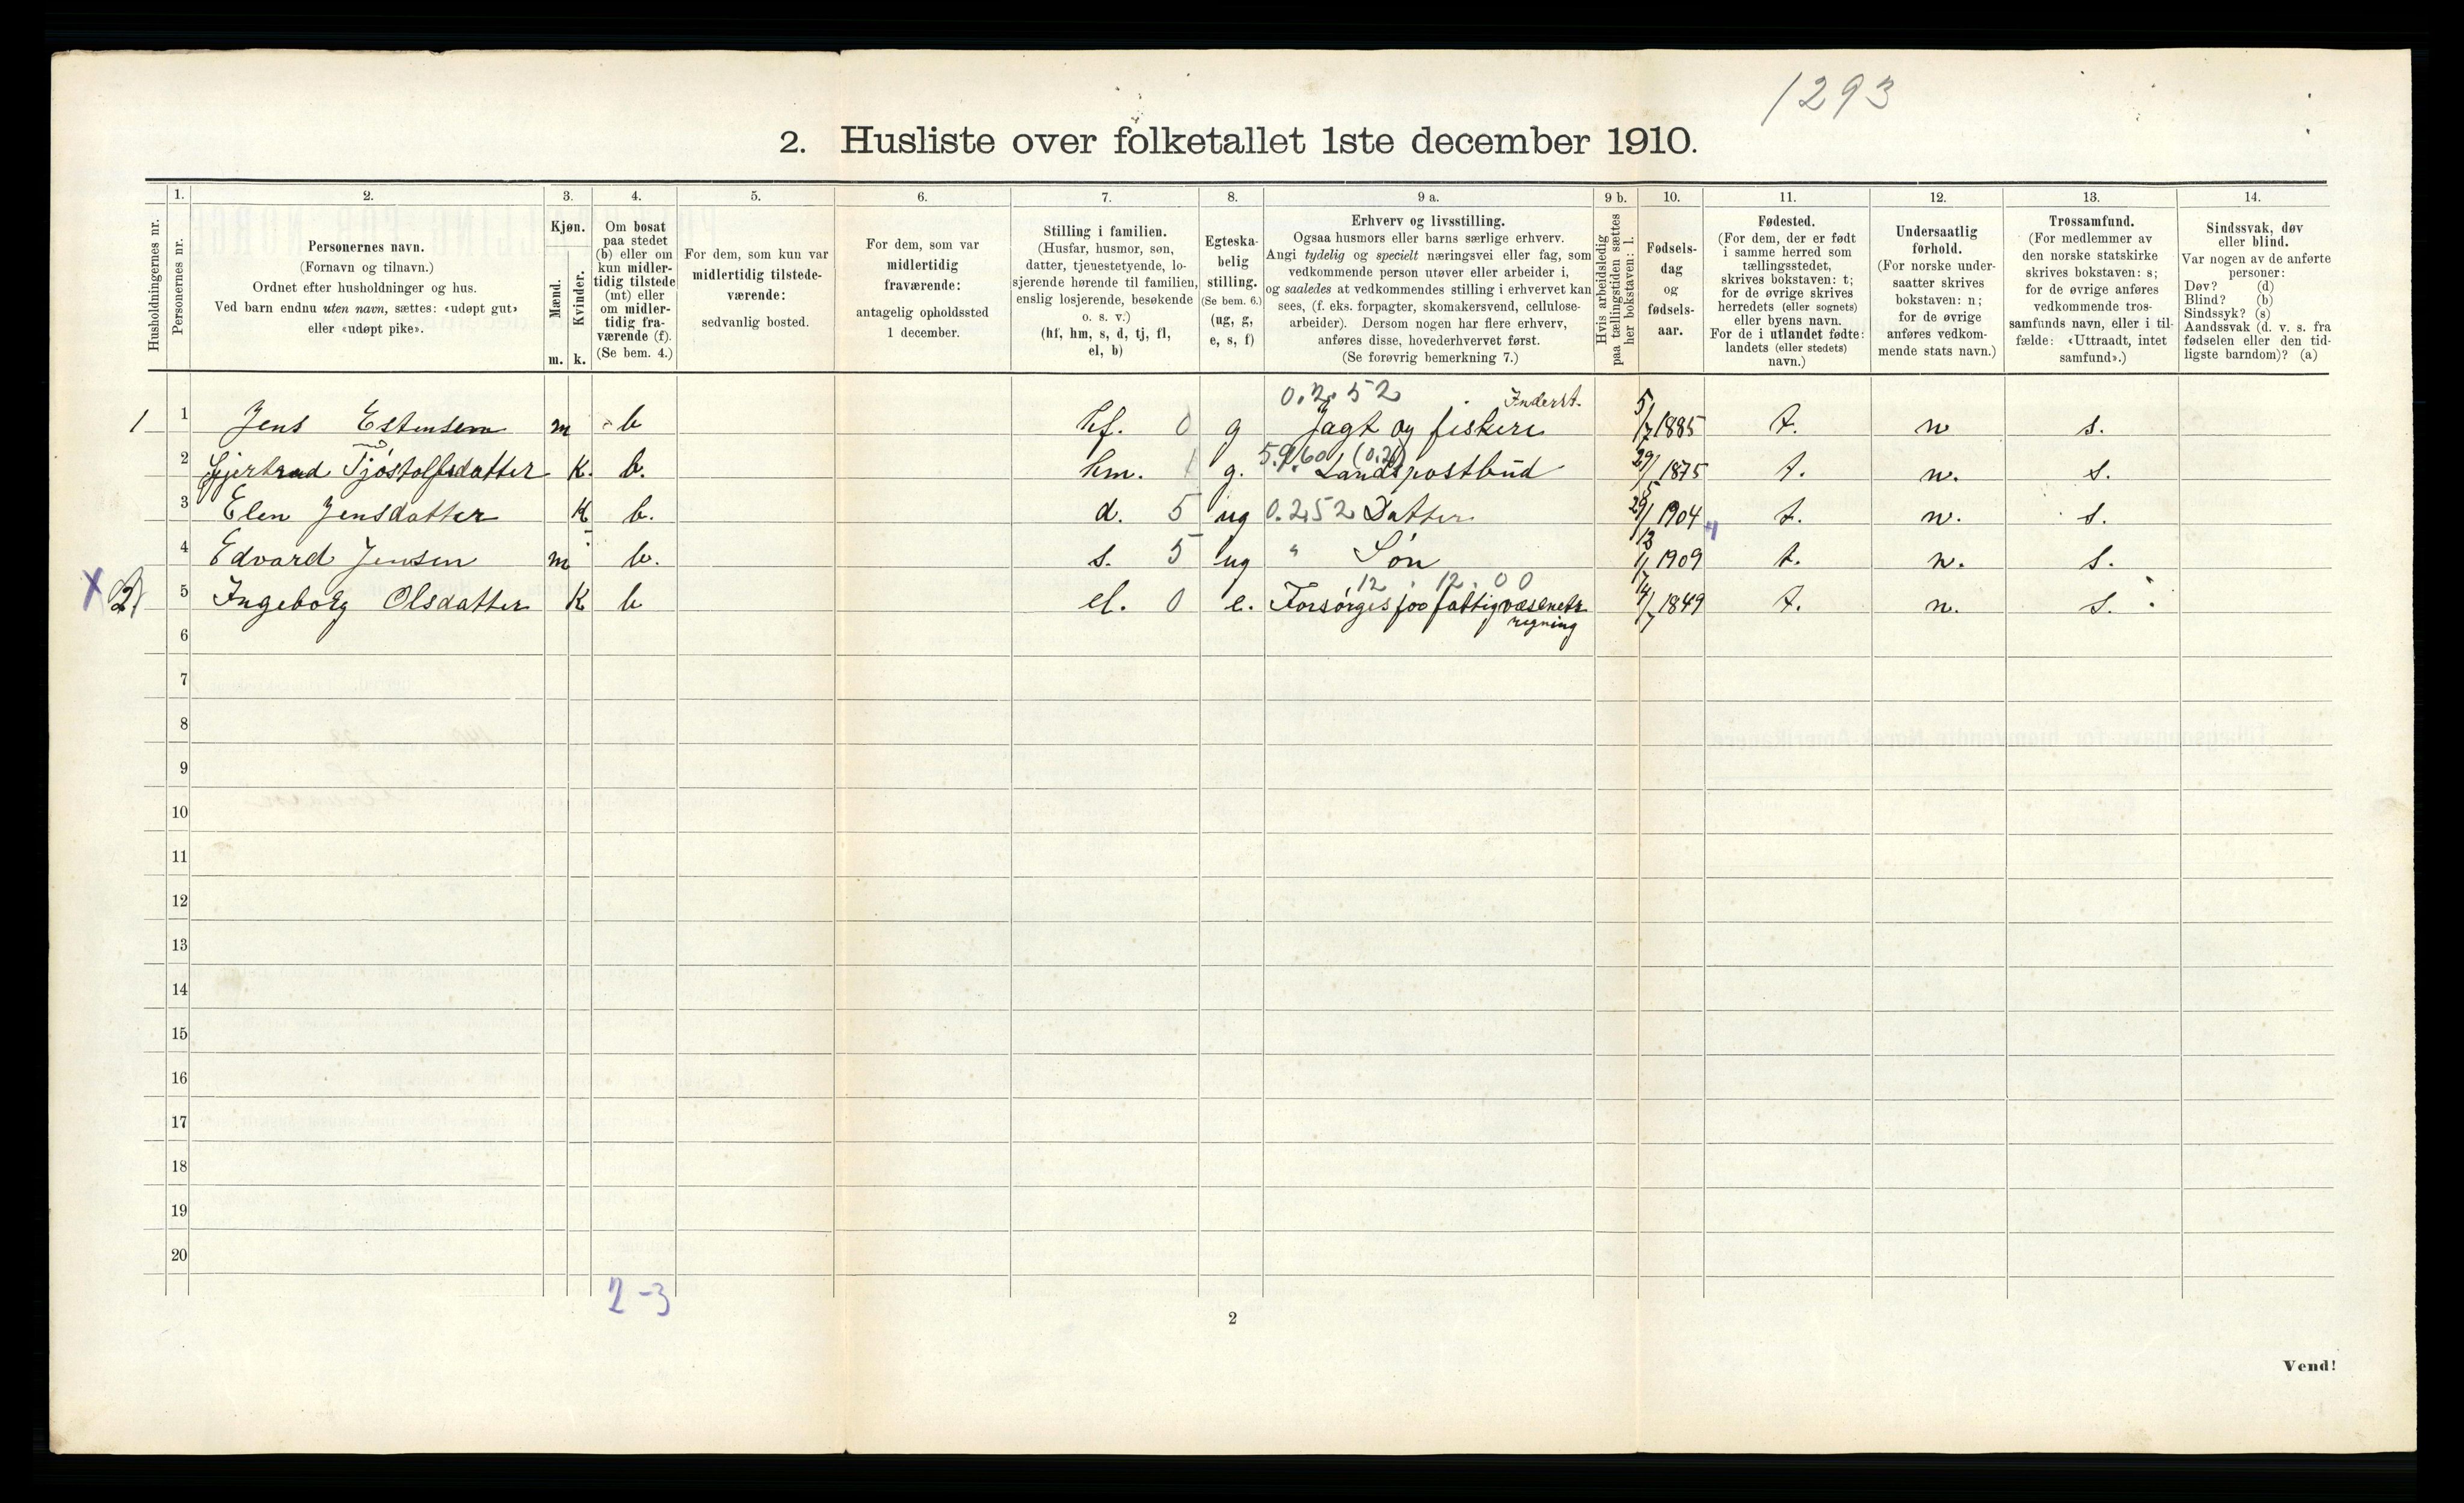 1293
2. Husliste over folketallet 1ste december 1910.
1. 2. 3. 4. 5. 6. 7. 8. 9 a. 9 b. 10. 11. 12. 13. 14.
Husholdningernes nr.
Personernes nr.
Personernes navn.
(Fornavn og tilnavn.)
Ordnet efter husholdninger og hus.
Ved barn endnu uten navn, sættes: «udøpt gut»
eller «udøpt pike».
Kjøn.
Mænd.
Kvinder.
m. k.
Om bosat
paa stedet
(b) eller om
kun midler-
tidig tilstede
(mt) eller
om midler-
tidig fra-
værende (f).
(Se bem. 4.)
For dem, som kun var
midlertidig tilstede-
værende:
sedvanlig bosted.
For dem, som var
midlertidig
fraværende:
antagelig opholdssted
1 december.
Stilling i familien.
(Husfar, husmor, søn,
datter, tjenestetyende, lo-
sjerende hørende til familien,
enslig losjerende, besøkende
o. s. v.)
(hf, hm, s, d, tj, fl,
el, b)
Egteska-
belig
stilling.
(Se bem. 6.)
(ug, g,
e, s, f)
Erhverv og livsstilling.
Ogsaa husmors eller barns særlige erhverv.
Angi tydelig og specielt næringsvei eller fag, som
vedkommende person utøver eller arbeider i,
og saaledes at vedkommendes stilling i erhvervet kan
sees, (f. eks. forpagter, skomakersvend, cellulose-
arbeider). Dersom nogen har flere erhverv,
anføres disse, hovederhvervet først.
(Se forøvrig bemerkning 7.)
Hvis arbeidsledig
paa tællingstiden sættes
her bokstaven: l.
Fødsels-
dag
og
fødsels-
aar.
Fødested.
(For dem, der er født
i samme herred som
tællingsstedet,
skrives bokstaven: t;
for de øvrige skrives
herredets (eller sognets)
eller byens navn.
For de i utlandet fødte:
landets (eller stedets)
navn.)
Undersaatlig
forhold.
(For norske under-
saatter skrives
bokstaven: n;
for de øvrige
anføres vedkom-
mende stats navn.)
Trossamfund.
(For medlemmer av
den norske statskirke
skrives bokstaven: s;
for de øvrige anføres
vedkommende tros-
samfunds navn, eller i til-
fælde: «Uttraadt, intet
samfund».)
Sindssvak, døv
eller blind.
Var nogen av de anførte
personer:
Døv? (d)
Blind? (b)
Sindssyk? (s)
Aandssvak (d. v. s. fra
fødselen eller den tid-
ligste barndom)? (a)
0.2.52 Inderst.
1 1 Jens Estensen m b hf. 0 g Jagt og fiskeri 5/7 1885 t. n s.
5.9.60 (0.2)
2 Gjertrud Tjøstolfsdatter K. b. hm. 1 g. Landspostbud 1875 t. n. s.
3 Elen Jensdatter K b. d. 5 ug 0.2.52 Datter 1904 t. n. s.
4 Edvard Jensen m b. s. 5 ug " Søn 1909 t. n. s.
12.12.00
X 2) 5 Ingeborg Olsdatter K b el. 0 e. Forsørges for fattigvæsenets 14/7 1849 t. n. s.
regning
6
7
8
9
10
11
12
13
14
15
16
17
18
19
20
2-3
2
Vend!